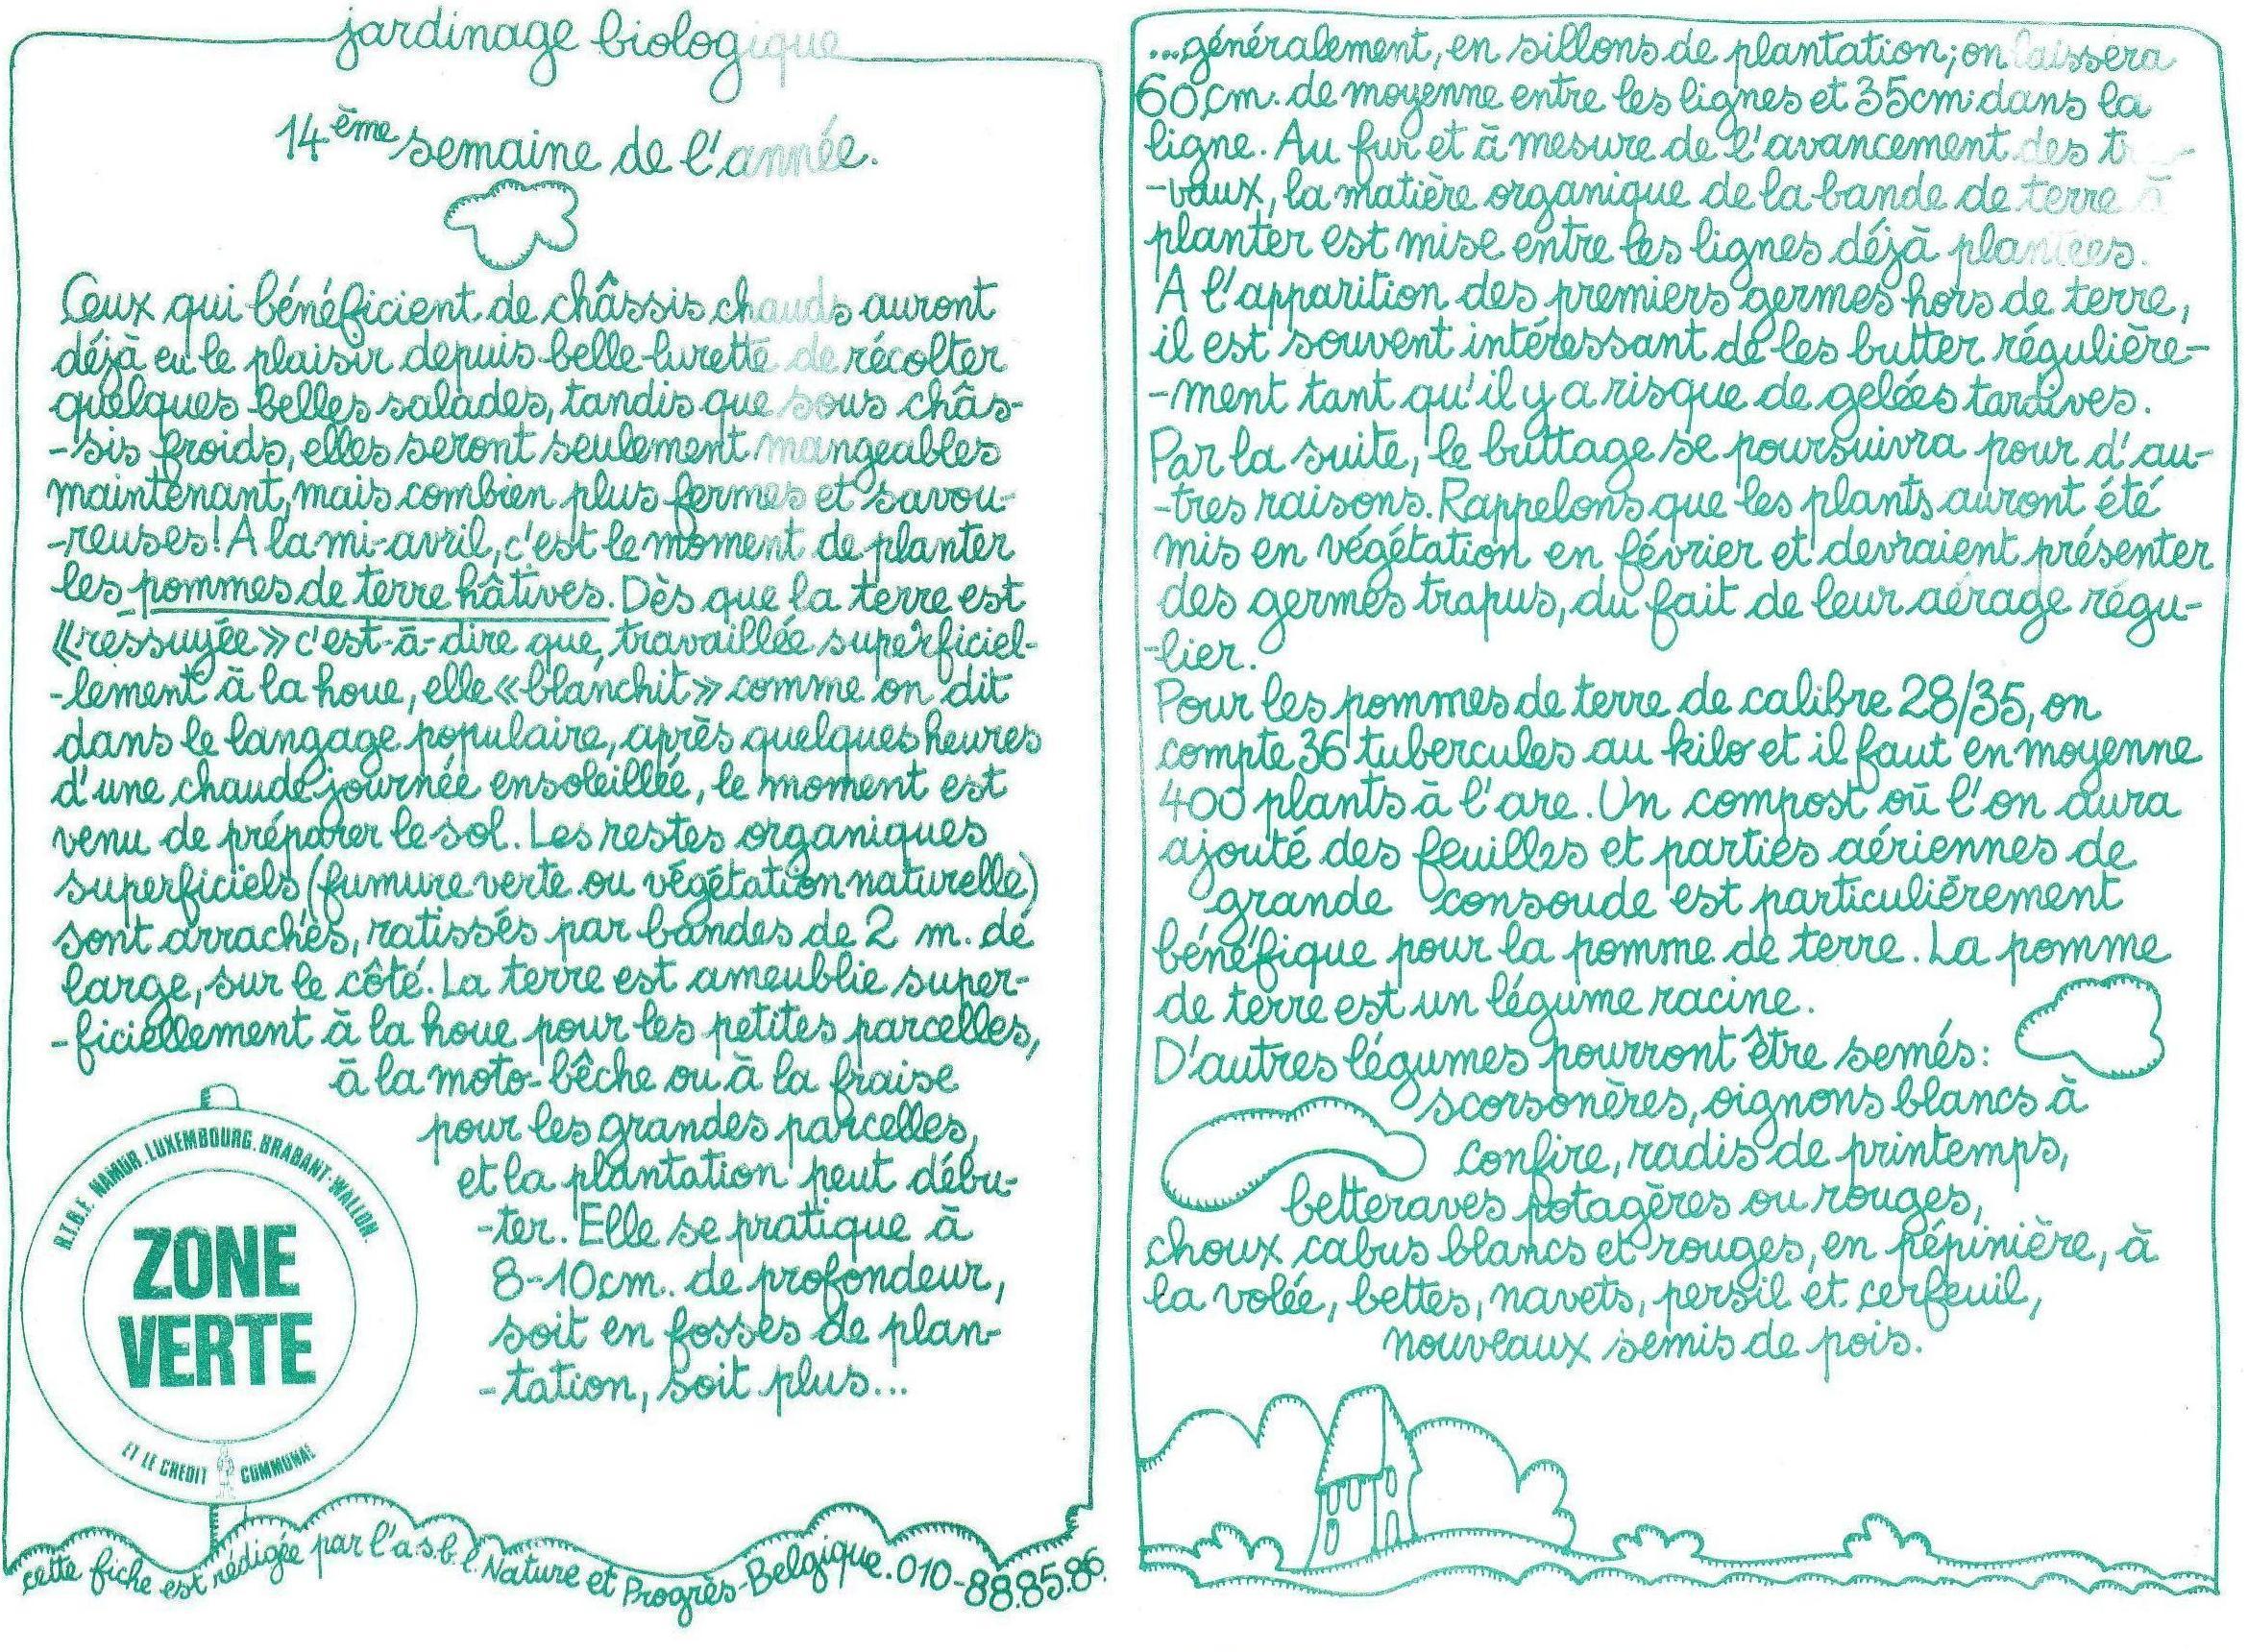 jardinage biologique
14ème semaine de l'année.
Ceux qui bénéficient de châssis chauds auront
déjà eu le plaisir depuis belle lurette de récolter
quelques belles salades, tandis que sous châs-
-sis froids, elles seront seulement mangeables
maintenant, mais combien plus fermes et savou-
-reuses! A la mi-avril, c'est le moment de planter
les pommes de terre hâtives. Dès que la terre est
«ressuyée» c'est-à-dire que, travaillée superficiel-
-lement à la houe, elle «blanchit» comme on dit
dans le langage populaire, après quelques heures
d'une chaude journée ensoleillée, le moment est
venu de préparer le sol. Les restes organiques
superficiels (fumure verte ou végétation naturelle)
sont arrachés, ratissés par bandes de 2 m. de
large, sur le côté. La terre est ameublie super-
-ficiellement à la houe pour les petites parcelles,
à la moto-bêche ou à la fraise
pour les grandes parcelles,
et la plantation peut débu-
-ter. Elle se pratique à
8-10cm. de profondeur,
soit en fosses de plan-
-tation, soit plus...
R.T.B.F. NAMUR. LUXEMBOURG. BRABANT-WALLON.
ZONE
VERTE
ET LE CREDIT COMMUNAL
cette fiche est rédigée par l'a.s.b.l. Nature et Progrès-Belgique. 010-88.85.86.
...généralement, en sillons de plantation; on laissera
60cm. de moyenne entre les lignes et 35cm. dans la
ligne. Au fur et à mesure de l'avancement des tra-
-vaux, la matière organique de la bande de terre à
planter est mise entre les lignes déjà plantées.
A l'apparition des premiers germes hors de terre,
il est souvent intéressant de les butter régulière-
-ment tant qu'il y a risque de gelées tardives.
Par la suite, le buttage se poursuivra pour d'au-
-tres raisons. Rappelons que les plants auront été
mis en végétation en février et devraient présenter
des germes trapus, du fait de leur aérage régu-
-lier.
Pour les pommes de terre de calibre 28/35, on
compte 36 tubercules au kilo et il faut en moyenne
400 plants à l'are. Un compost où l'on aura
ajouté des feuilles et parties aériennes de
grande consoude est particulièrement
bénéfique pour la pomme de terre. La pomme
de terre est un légume racine.
D'autres légumes pourront être semés:
scorsonères, oignons blancs à
confire, radis de printemps,
betteraves potagères ou rouges,
choux cabus blancs et rouges, en pépinière, à
la volée, bettes, navets, persil et cerfeuil,
nouveaux semis de pois.